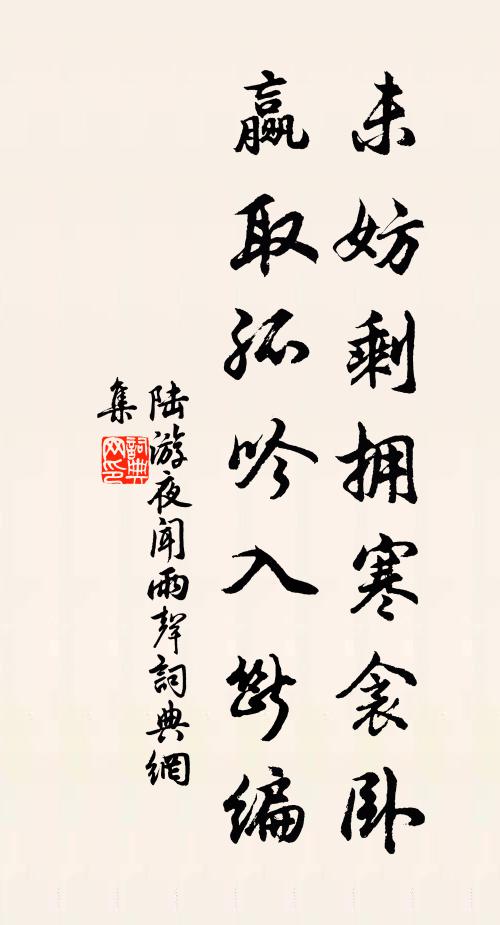 未妨剩拥寒衾卧
赢取孤吟入断编
陆游夜闻雨聲詞典網
集
詞典网印